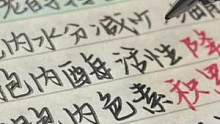 内水分减少
胞内酶活性降
胞内色素积累